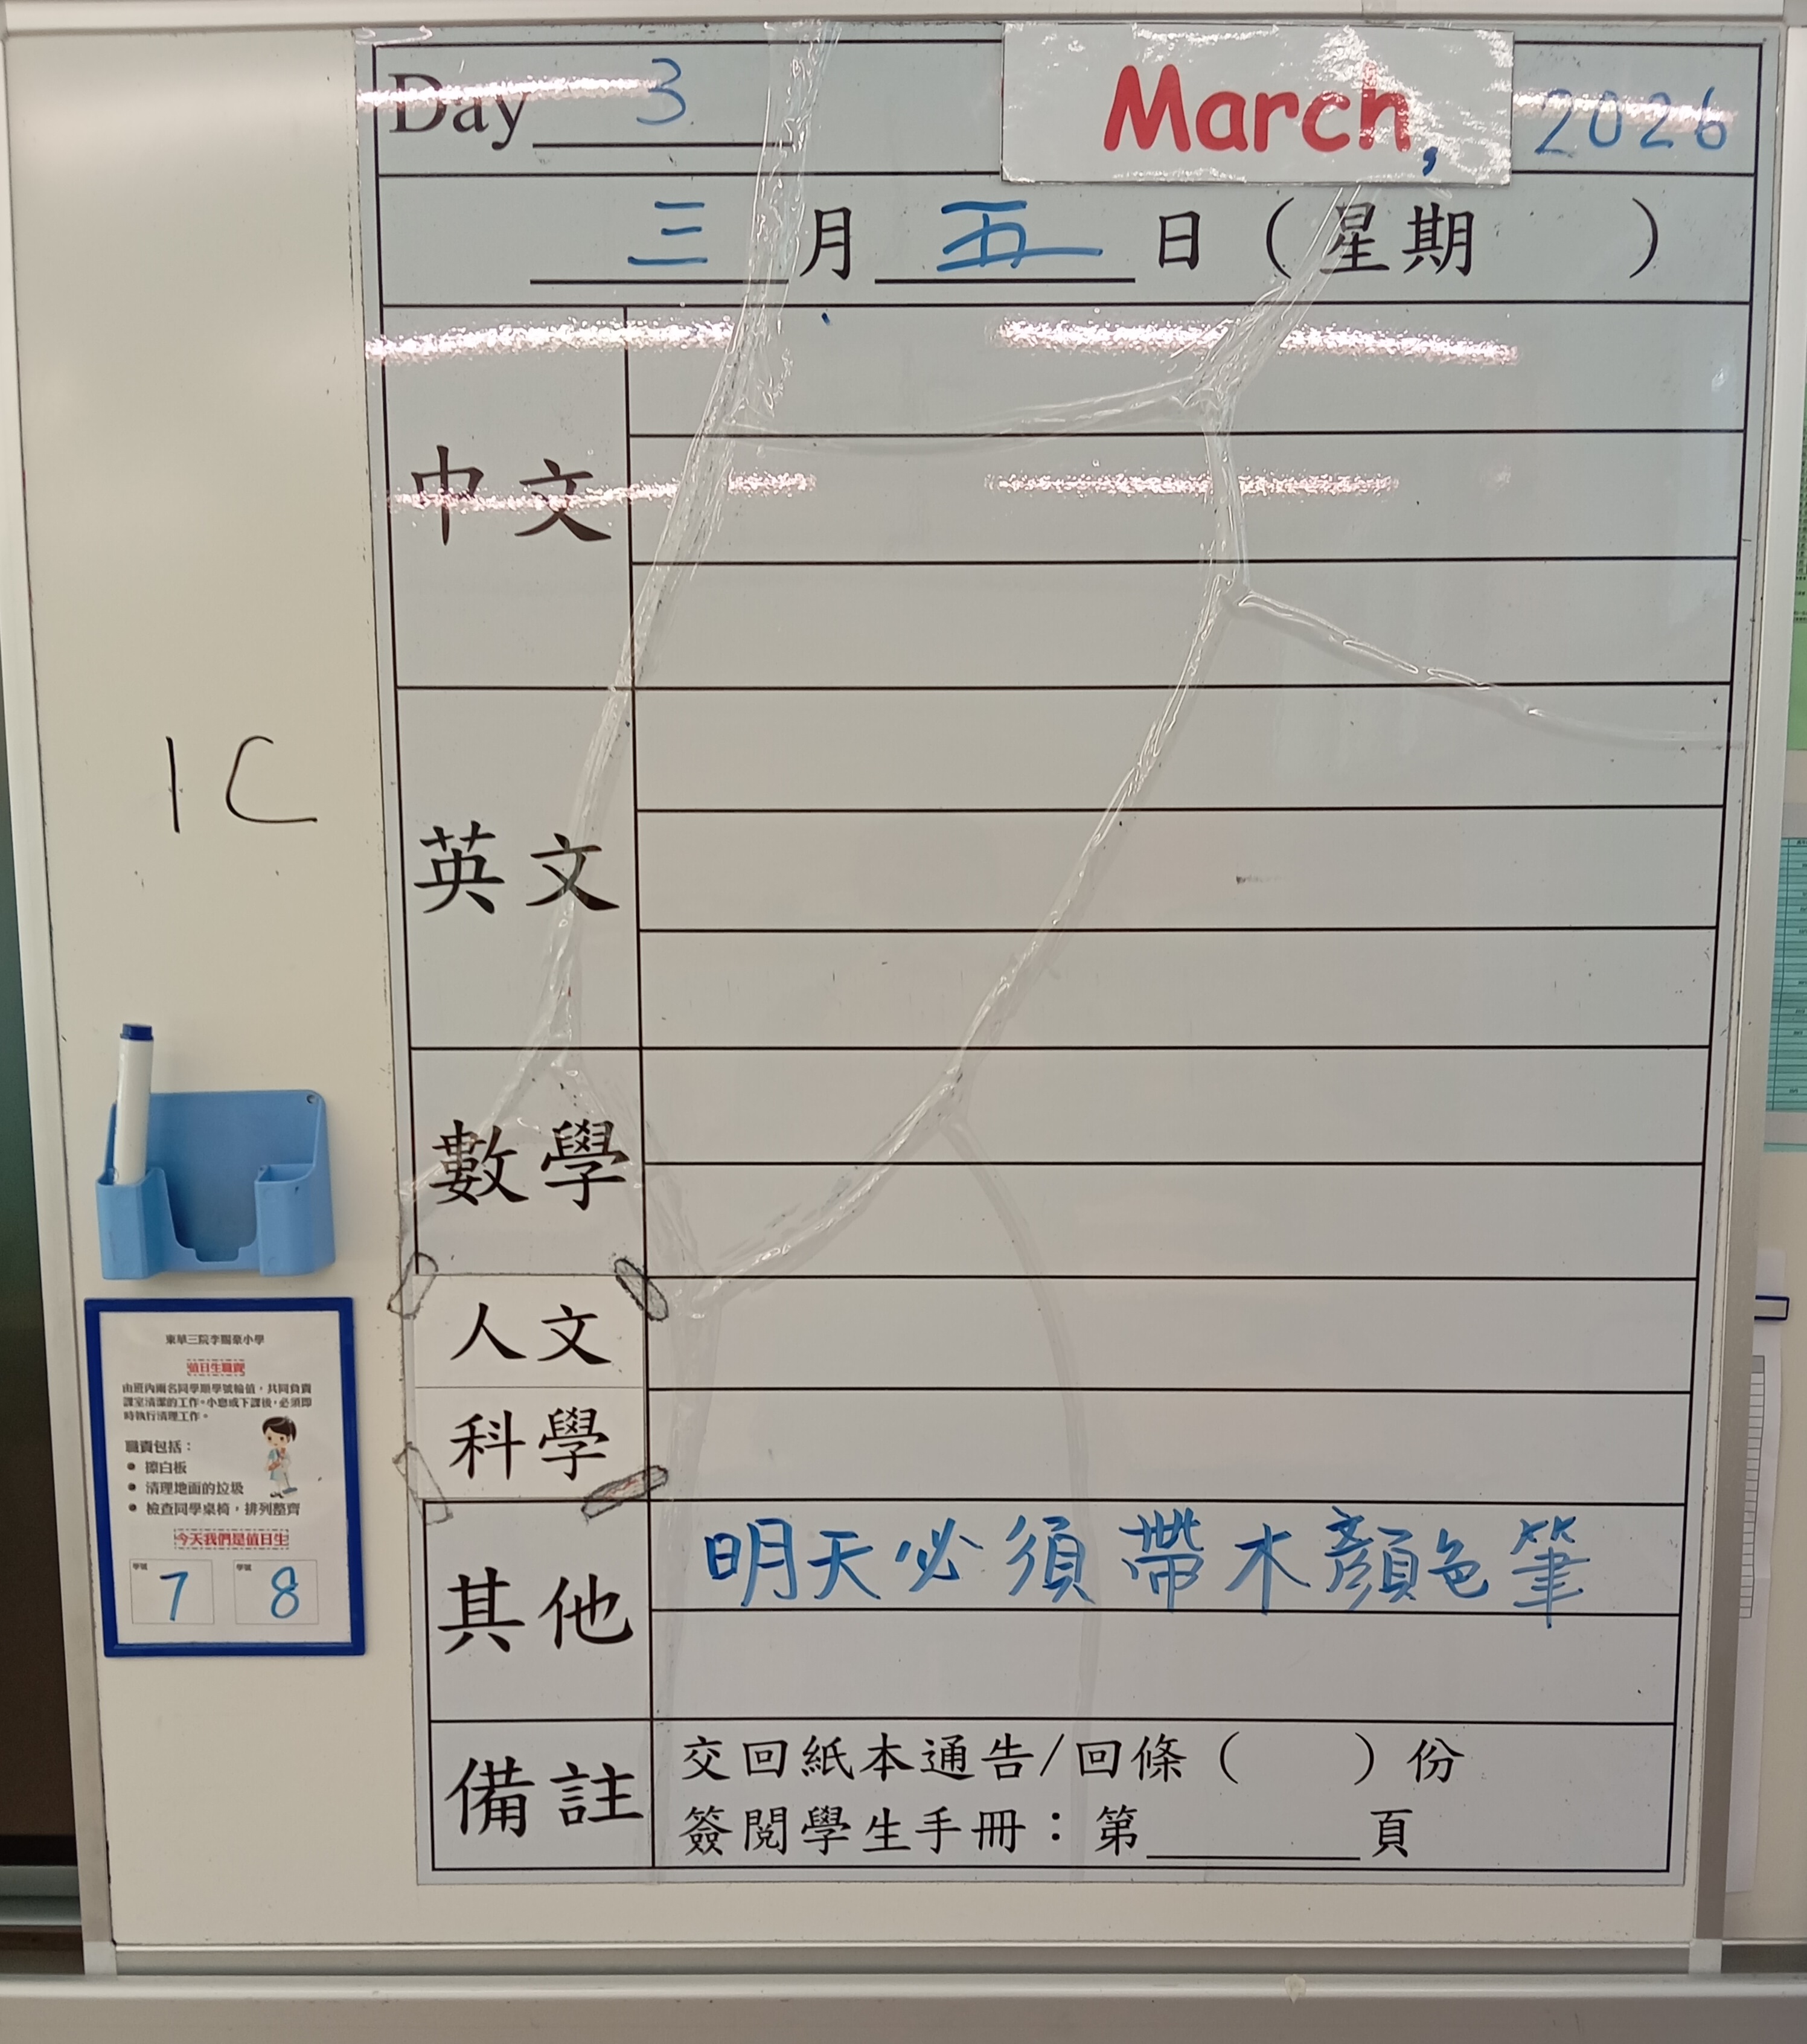 Day 3 March, 2026
三月五日（星期　）
中文
英文
1C
數學
人文
科學
其他 明天必須帶木顏色筆
備註 交回紙本通告/回條（　）份
簽閱學生手冊：第______頁
東華三院李賜豪小學
值日生職責
由班內兩名同學順學號輪值，共同負責
課室清潔的工作。小息或下課後，必須即
時執行清理工作。
職責包括：
● 擦白板
● 清理地面的垃圾
● 檢查同學桌椅，排列整齊
今天我們是值日生
學號 7 學號 8